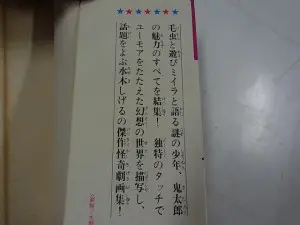 毛虫と遊びミイラと語る謎の少年、鬼太郎
の魅力のすべてを結集！　独特のタッチで
ユーモアをたたえた幻想の世界を描写し、
話題をよぶ水木しげるの傑作怪奇劇画集！